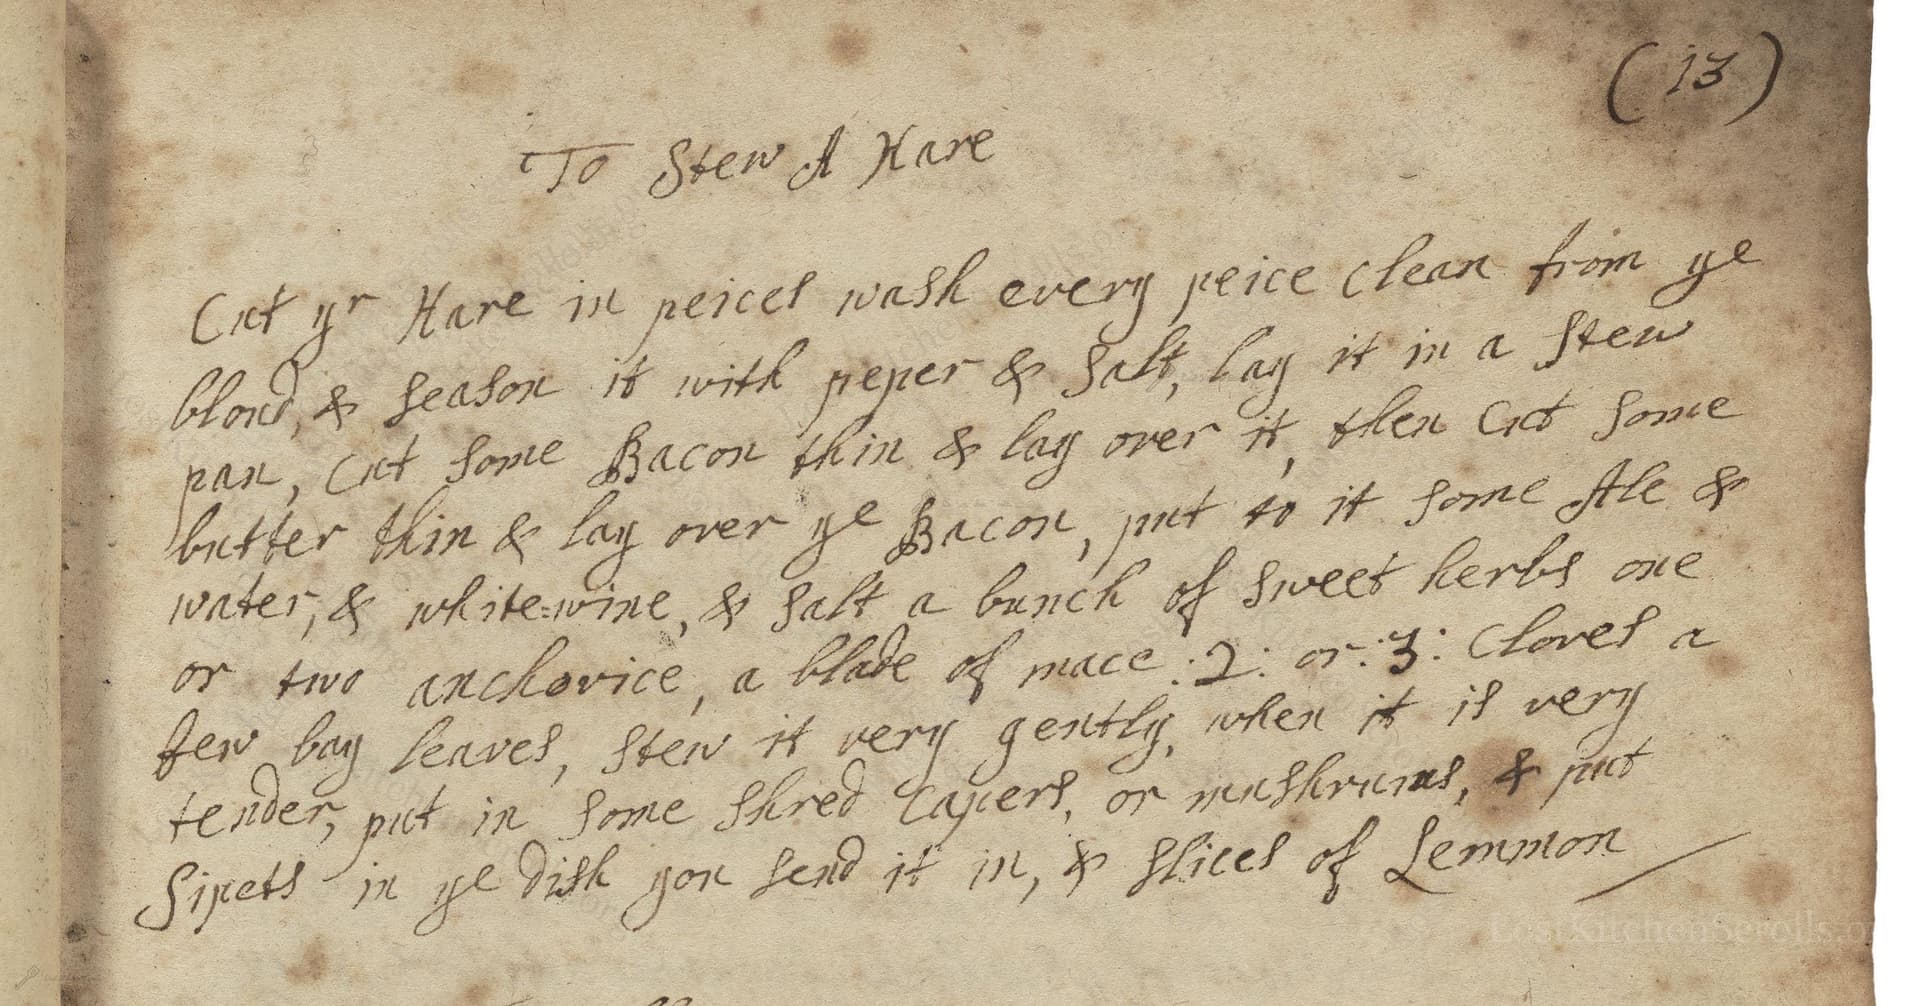 (13)
To Stew A Hare
Cut yr Hare in peices wash every peice clean from ye
bloud, & season it with peper & salt, lay it in a stew
pan, cut some Bacon thin & lay over it, then cut some
butter thin & lay over ye Bacon, put to it some Ale &
water, & white=wine, & salt a bunch of sweet herbs one
or two anchovice, a blade of mace :2: or :3: Cloves a
few bay leaves, stew it very gently, when it is very
tender, put in some shred Capers, or mushrums, & put
Sipets in ye dish you send it in, & slices of Lemmon
LostKitchenScrolls.o